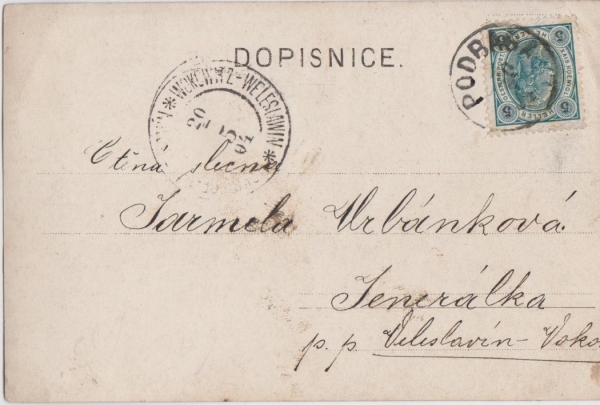 DOPISNICE.
PODBABA
WOKOWITZ-WELESLAWIN
20 5 04
5 5
5 5
Ctěná slečna
Jarmela Urbánková
Jenerálka
p. p. Veleslavín - Voko